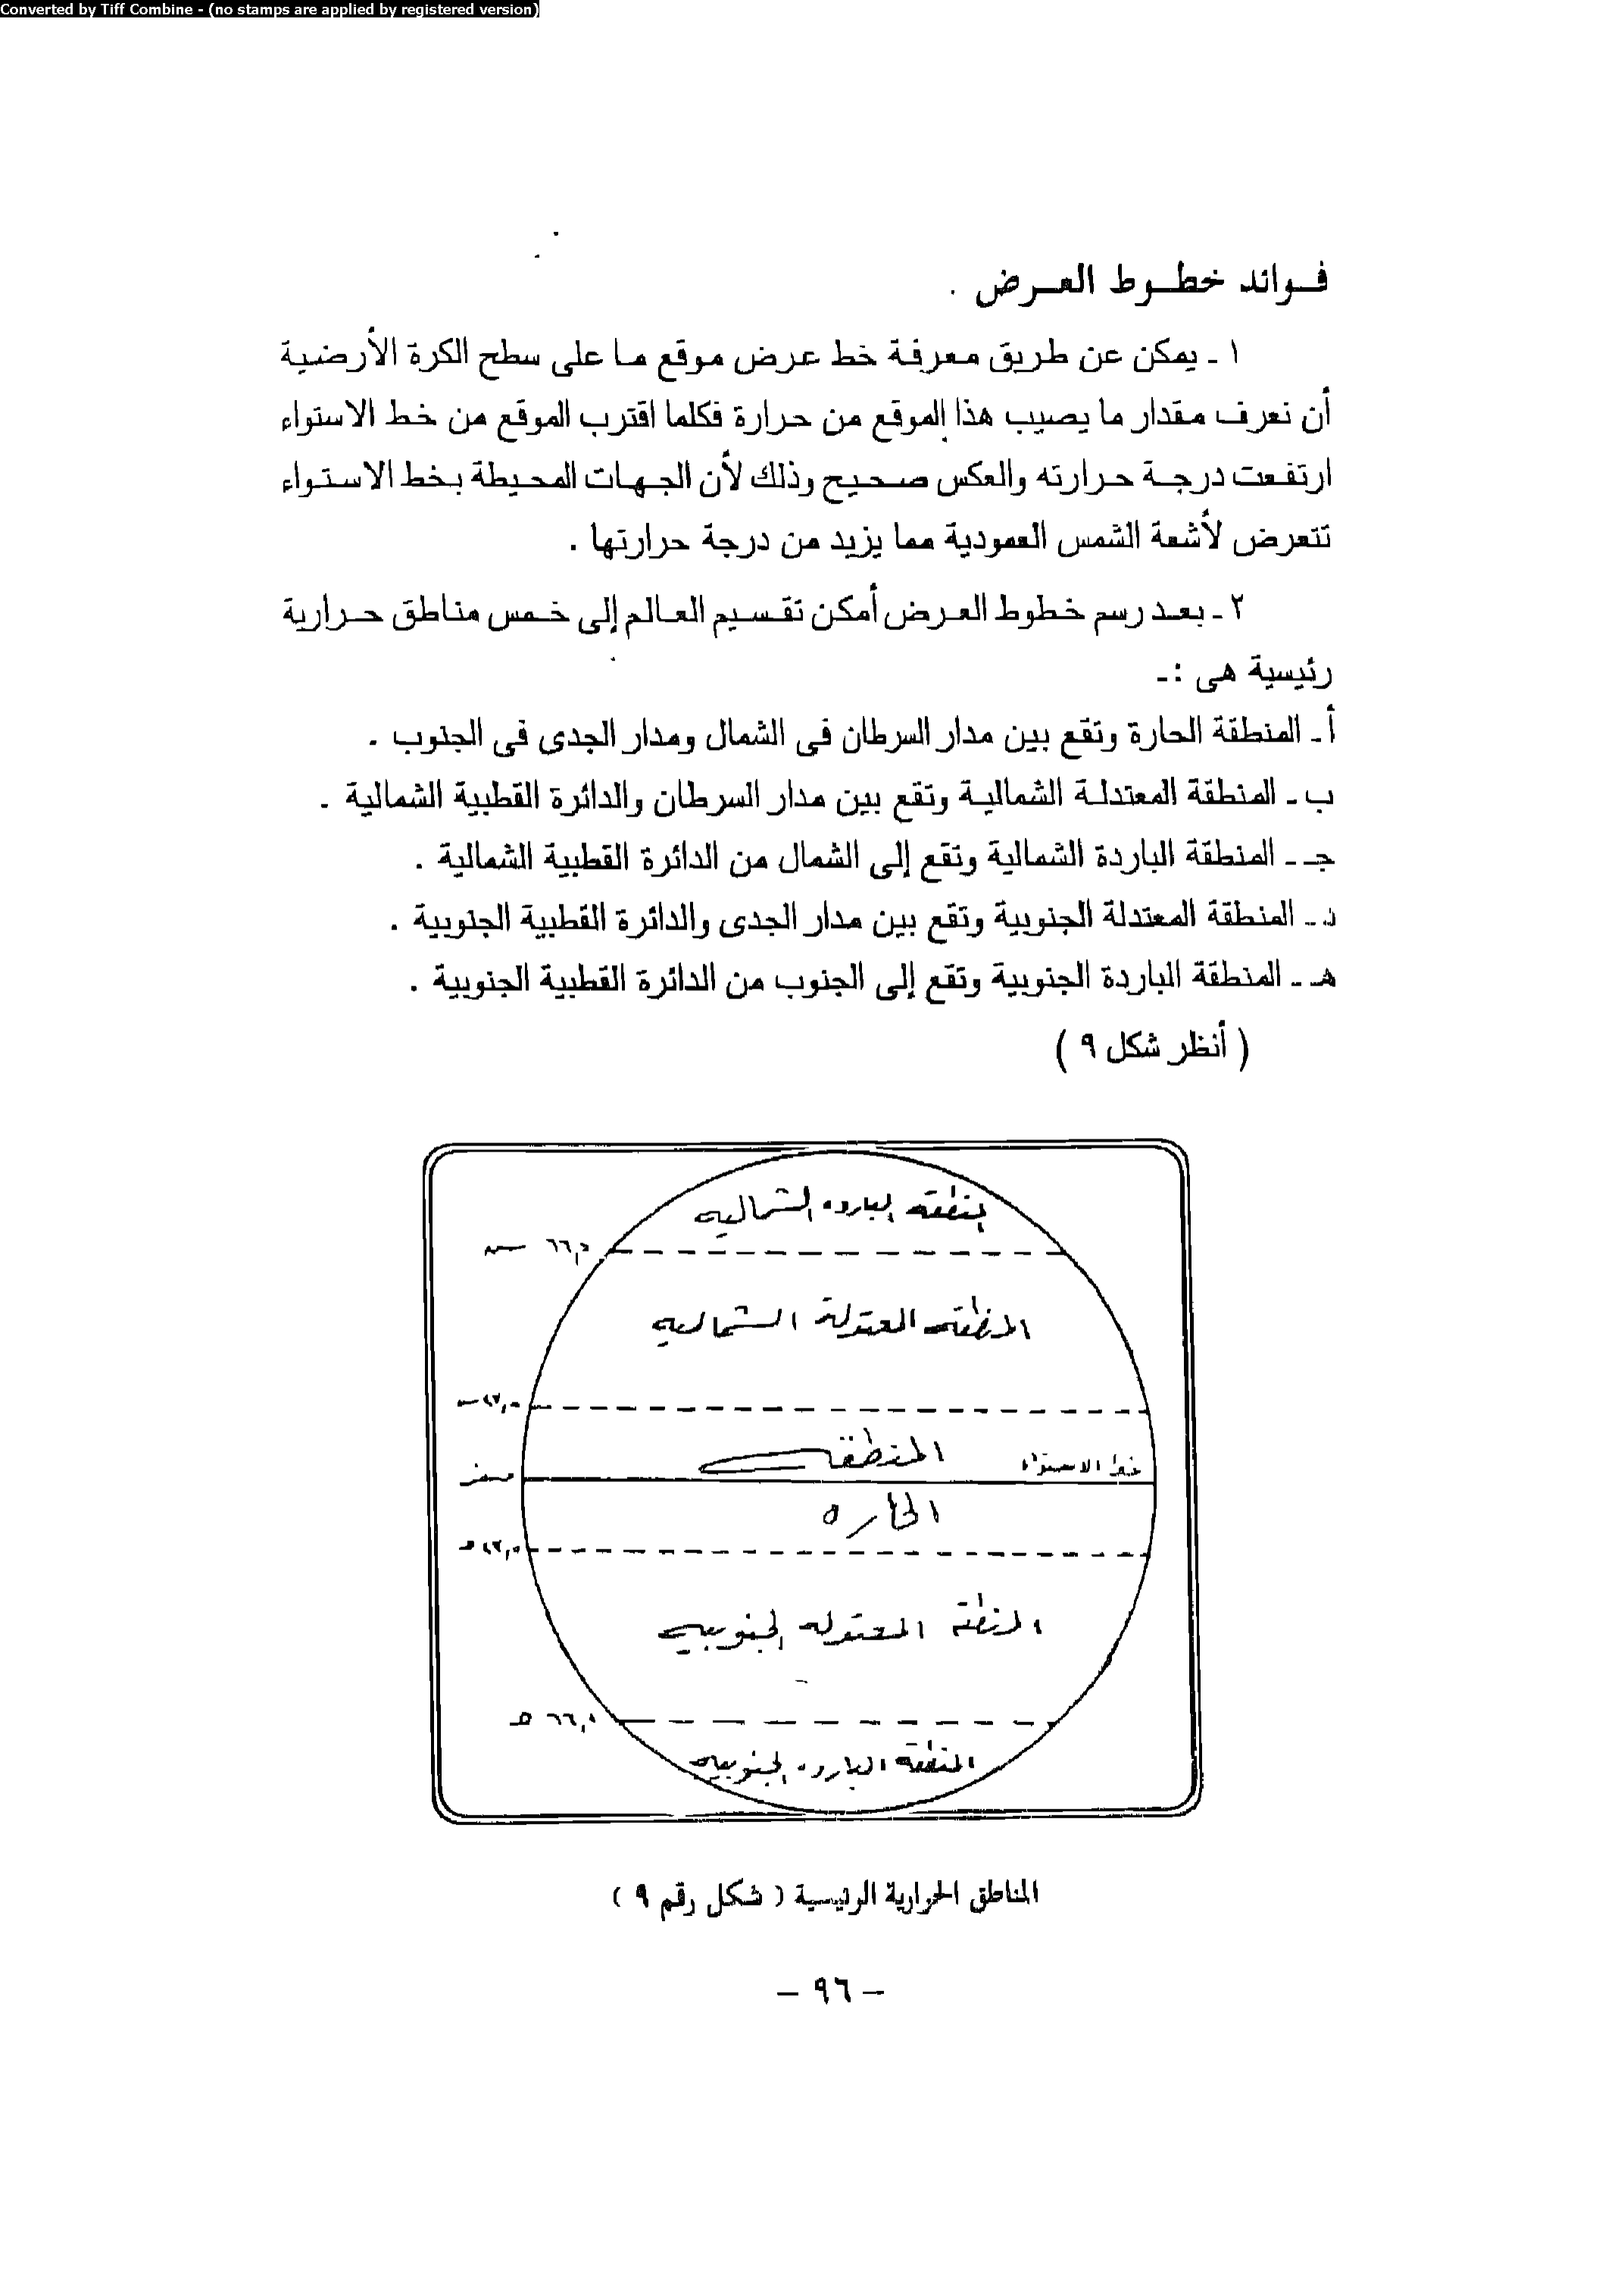 Converted by Tiff Combine - (no stamps are applied by registered version)
فوائد خطوط العرض .
١ - يمكن عن طريق معرفة خط عرض موقع ما على سطح الكرة الأرضية
أن نعرف مقدار ما يصيب هذا الموقع من حرارة فكلما اقترب الموقع من خط الاستواء
ارتفعت درجة حرارته والعكس صحيح وذلك لأن الجهات المحيطة بخط الاستواء
تتعرض لأشعة الشمس العمودية مما يزيد من درجة حرارتها .
٢ - بعد رسم خطوط العرض أمكن تقسيم العالم إلى خمس مناطق حرارية
رئيسية هى :-
أ - المنطقة الحارة وتقع بين مدار السرطان فى الشمال ومدار الجدى فى الجنوب .
ب - المنطقة المعتدلة الشمالية وتقع بين مدار السرطان والدائرة القطبية الشمالية .
جـ - المنطقة الباردة الشمالية وتقع إلى الشمال من الدائرة القطبية الشمالية .
د - المنطقة المعتدلة الجنوبية وتقع بين مدار الجدى والدائرة القطبية الجنوبية .
هـ - المنطقة الباردة الجنوبية وتقع إلى الجنوب من الدائرة القطبية الجنوبية .
( أنظر شكل ٩ )
المنطقه البارده الشماليه
٦٦,٥
المنطقه المعتدلة الشماليه
٢٣,٥
المنطقه
خط الاستواء
صفر
الحاره
٢٣,٥
المنطقة المعتدله الجنوبيه
٦٦,٥
المنطقه البارده الجنوبيه
المناطق الحرارية الرئيسية ( شكل رقم ٩ )
– ٩٦ –